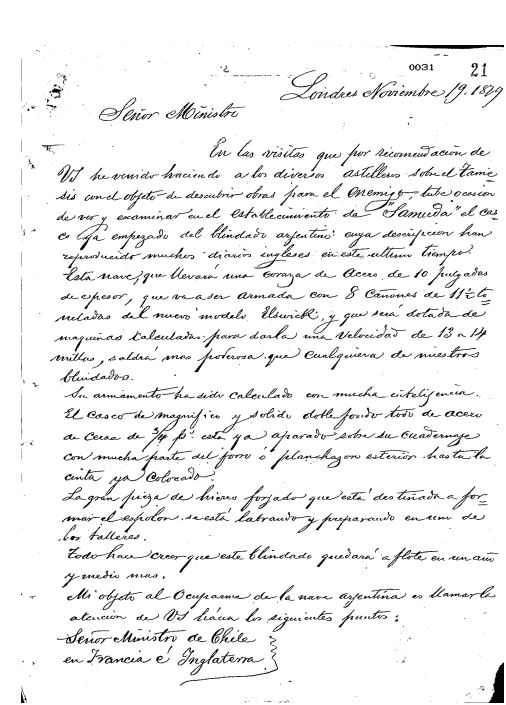 0031 21
Londres Noviembre 19. 1879
Señor Ministro
En las visitas que por recomendacion de
VS he venido haciendo a los diversos astilleros sobre el Tame
sis con el objeto de descubrir obras para el enemigo, tube ocasion
de ver y examinar en el establecimiento de "Samuda" el cas
co ya empezado del blindado argentino: cuya descripcion han
reproducido muchos diarios ingleses en este ultimo tiempo.
Esta nave, que llevará una coraza de acero de 10 pulgadas
de espesor, que va a ser armada con 8 Cañones de 11½ to
neladas del nuevo modelo Elswick, y que será dotada de
maquinas calculadas para darla una velocidad de 13 a 14
millas, saldrá mas poderosa que cualquiera de nuestros
blindados.
Su armamento ha sido calculado con mucha inteligencia.
El casco de magnifico y solido doble fondo todo de acero
de cerca de ¾ p.º está ya aparado sobre su cuadernaje
con mucha parte del forro ó planchazon exterior hasta la
cinta ya colocado.
La gran pieza de hierro forjado que está destinada a for
mar el espolon se está labrando y preparando en uno de
los talleres.
Todo hace creer que este blindado quedará a flote en un año
y medio mas.
Mi objeto al Ocuparme de la nave argentina es llamar la
atencion de VS hácia los siguientes puntos:
Señor Ministro de Chile
en Francia é Inglaterra